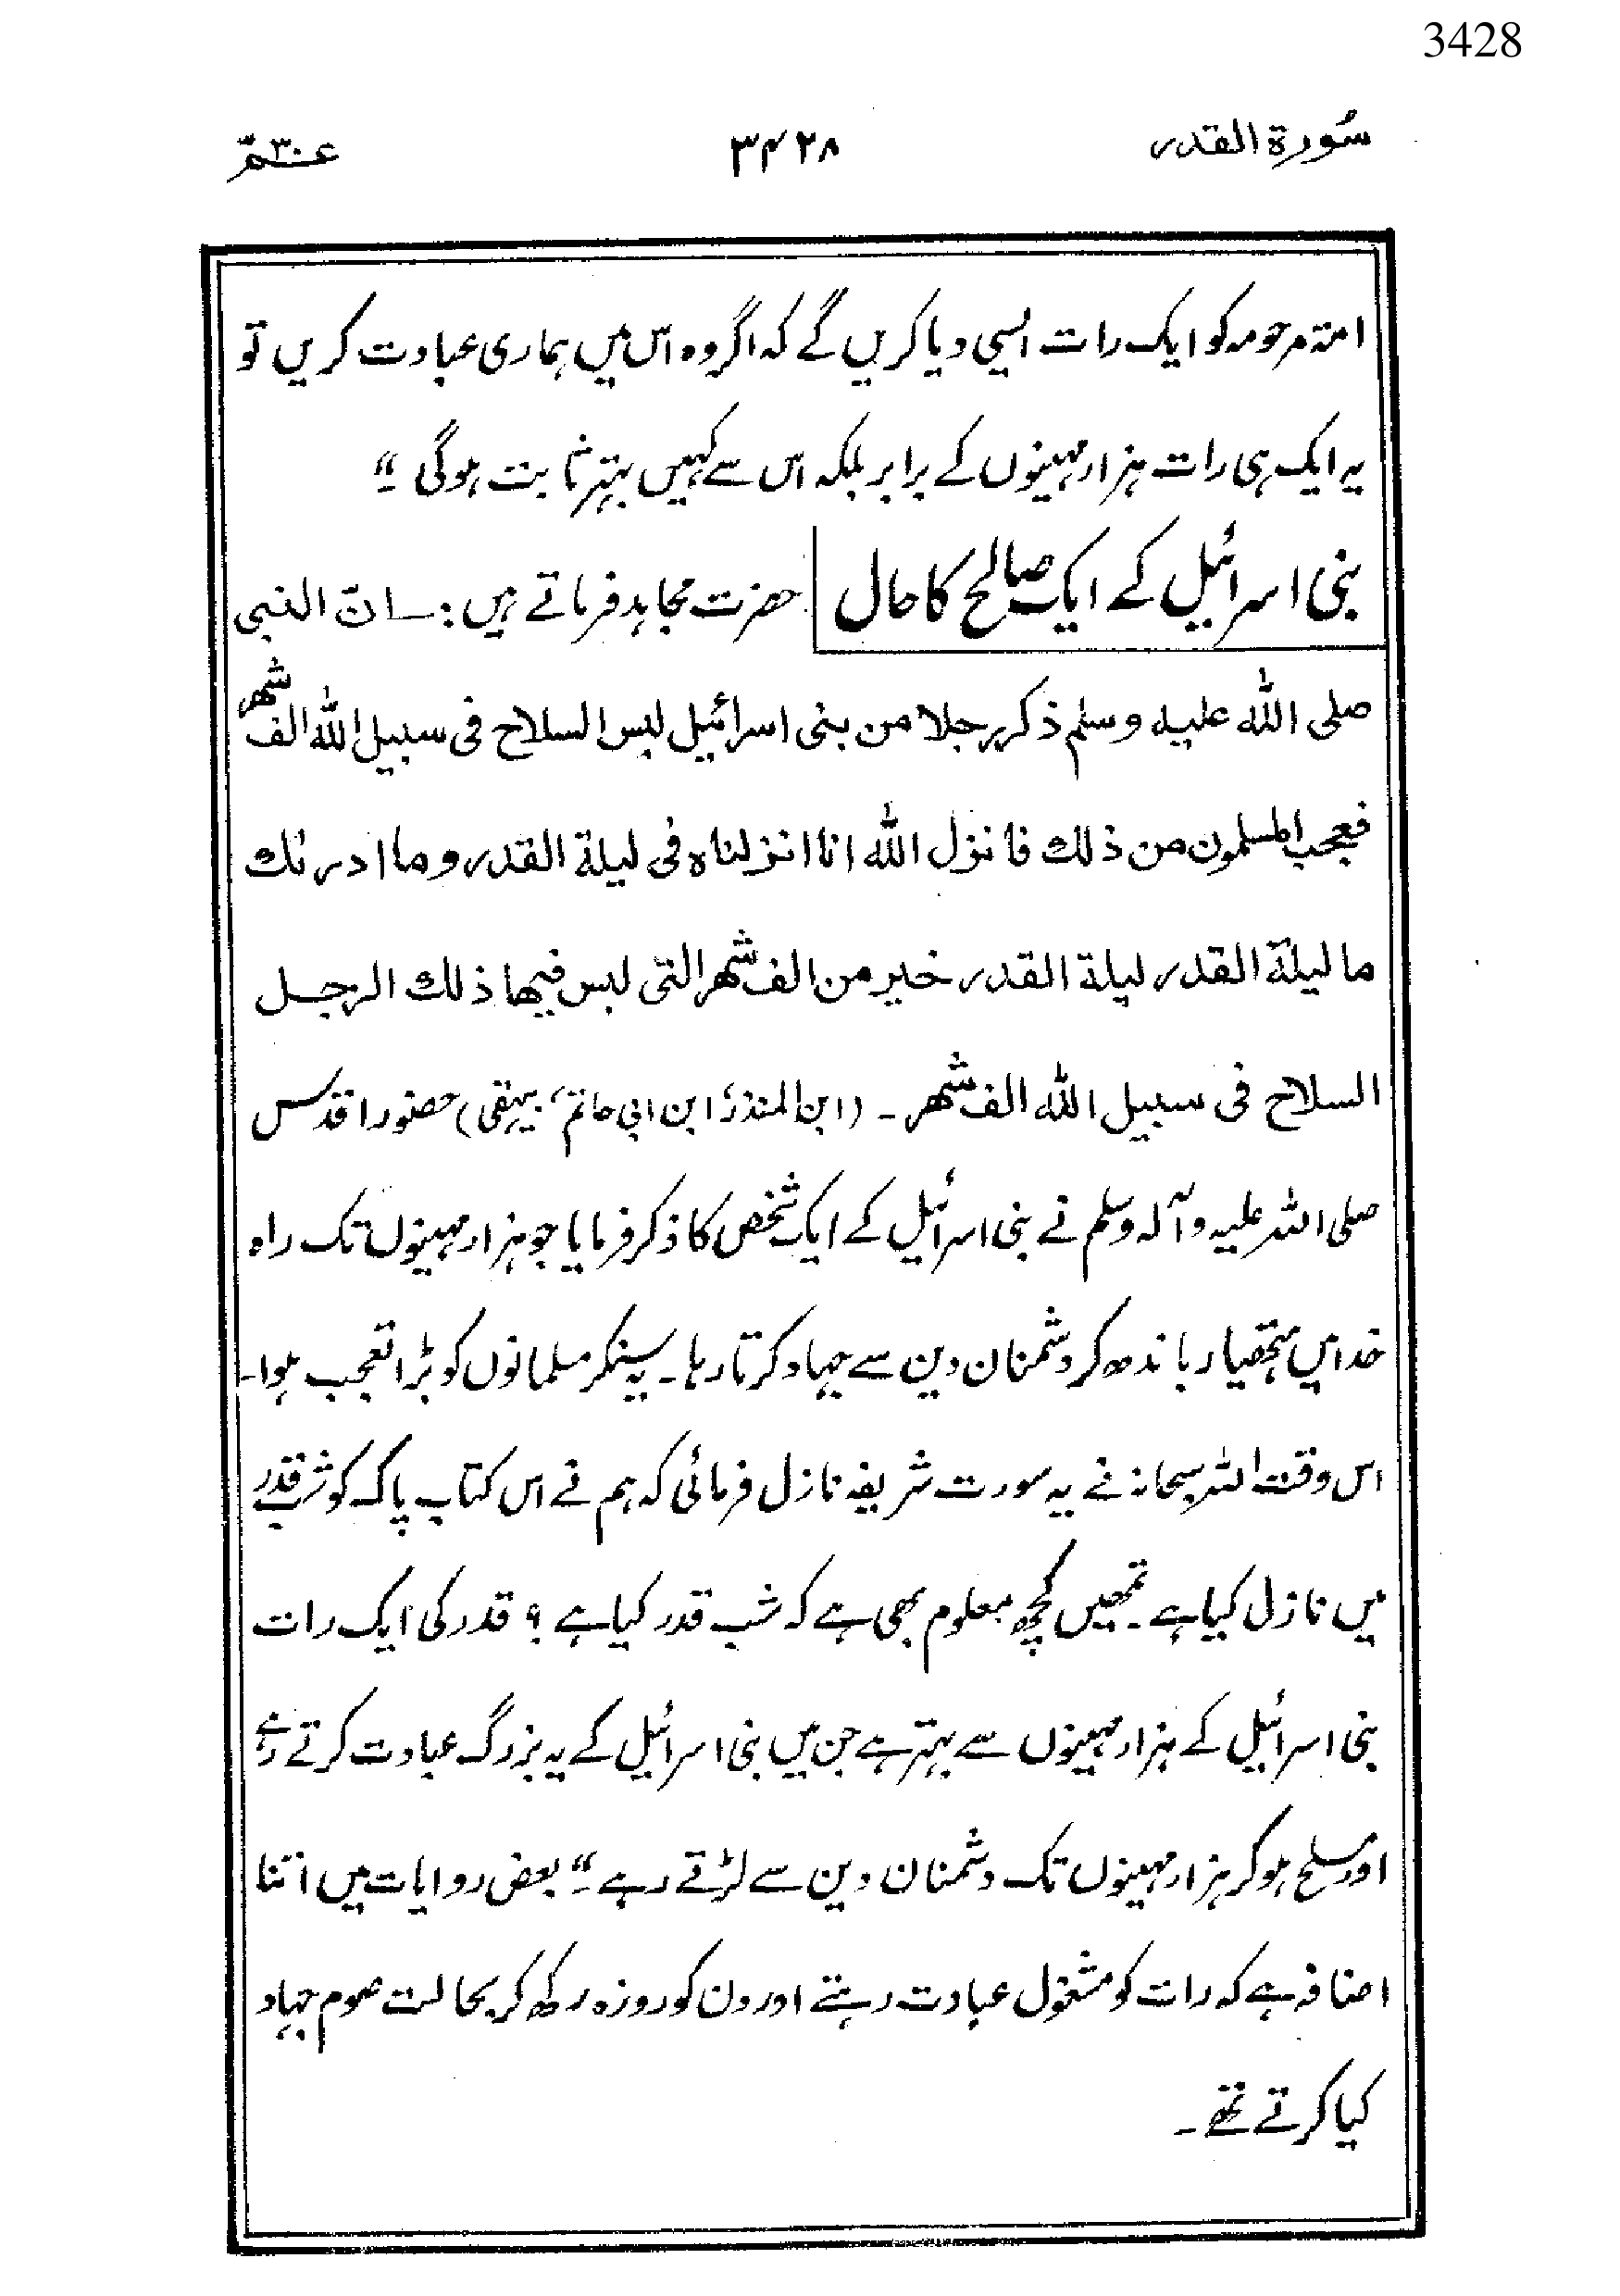 3428
سُورة القدر ۳۴۲۸ عمّ ۳۰
امتہ مرحومہ کو ایک رات ایسی دیا کریں گے کہ اگر وہ اس میں ہماری عبادت کریں تو
یہ ایک ہی رات ہزار مہینوں کے برابر بلکہ اس سے کہیں بہتر ثابت ہوگی ؂"
بنی اسرائیل کے ایک صالح کا حال حضرت مجاہد فرماتے ہیں :۔ انّ النبی
صلی اللہ علیہ وسلم ذکر رجلا من بنی اسرائیل لبس السلاح فی سبیل اللہ الف شھر
فعجب المسلمون من ذلك فانزل اللہ انا انزلناہ فی لیلۃ القدر وما ادرٰىك
ما لیلۃ القدر لیلۃ القدر خیر من الف شھر التی لبس فیھا ذلك الرجل
السلاح فی سبیل اللہ الف شھر ۔ (ابن المنذر، ابن ابی حاتم، بیہقی) حضور اقدس
صلی اللہ علیہ وآلہ وسلم نے بنی اسرائیل کے ایک شخص کا ذکر فرمایا جو ہزار مہینوں تک راہ
خدا میں ہتھیار باندھ کر دشمنان دین سے جہاد کرتا رہا۔ یہ سنکر مسلمانوں کو بڑا تعجب ہوا۔
اس وقت اللہ سبحانہ نے یہ سورت شریفہ نازل فرمائی کہ ہم نے اس کتاب پاک کو شب قدر
میں نازل کیا ہے۔ تمھیں کچھ معلوم بھی ہے کہ شب قدر کیا ہے ؟ قدر کی ایک رات
بنی اسرائیل کے ہزار مہینوں سے بہتر ہے جن میں بنی اسرائیل کے یہ بزرگ عبادت کرتے رہے
اور مسلح ہوکر ہزار مہینوں تک دشمنان دین سے لڑتے رہے ۔" بعض روایات میں اتنا
اضافہ ہے کہ رات کو مشغول عبادت رہتے اور دن کو روزہ رکھ کر بحالت صوم جہاد
کیا کرتے تھے ۔